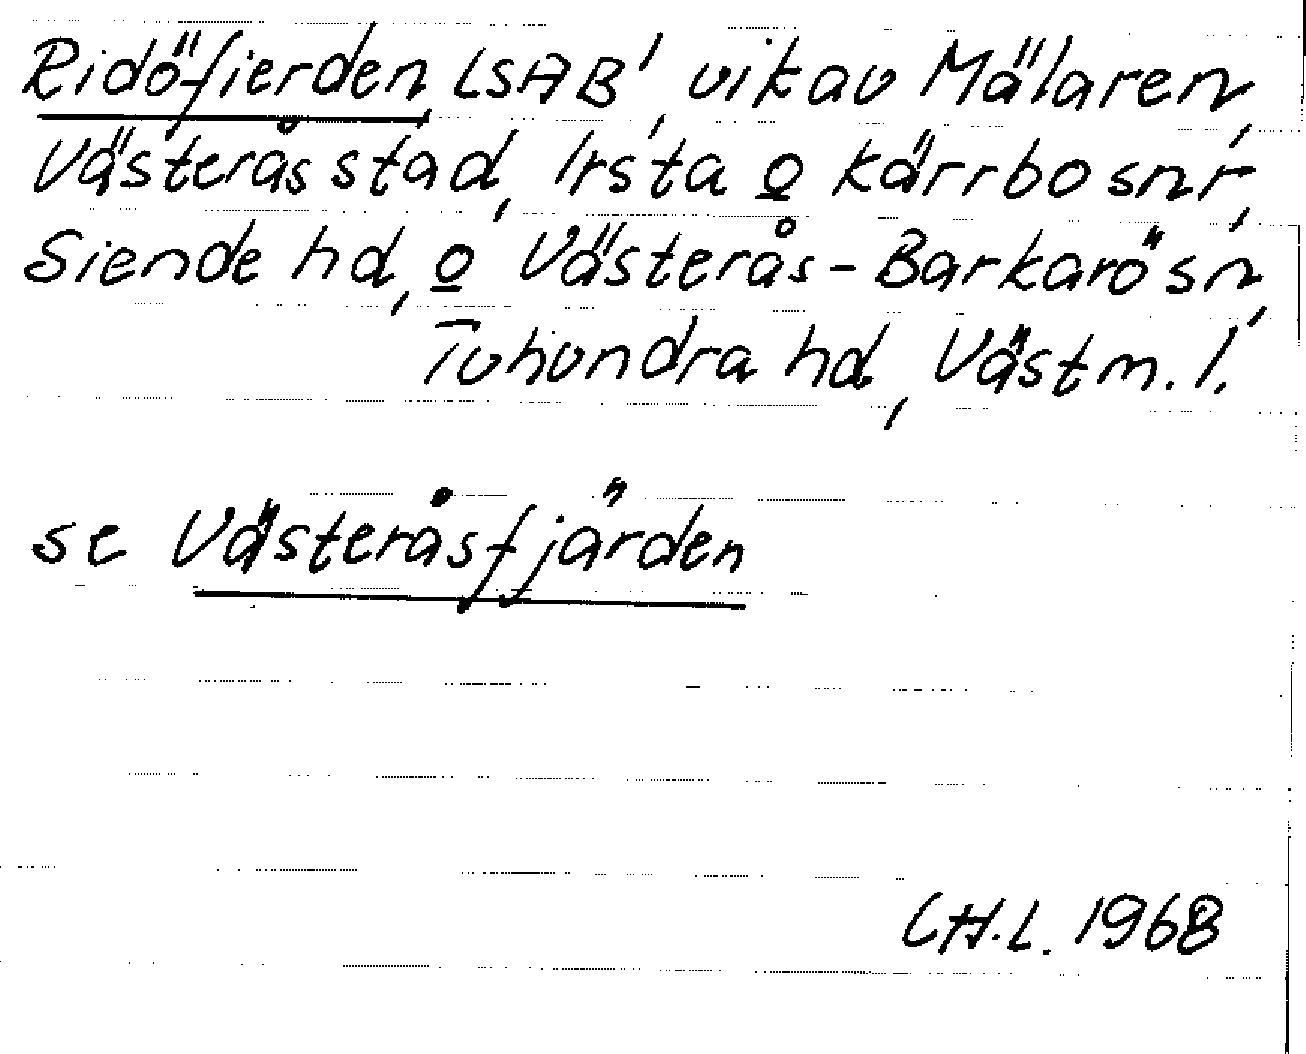 Ridöfierden, LSAB', vik av Mälaren,
Västerås stad, Irsta o Kärrbo snr,
Siende hd, o Västerås-Barkarö sn,
Tuhundra hd, Västm. l.
se Västeråsfjärden
CH.L. 1968